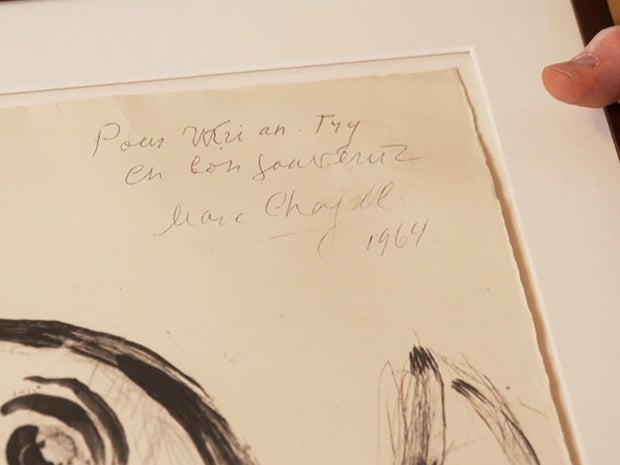 Pour
en bon souvenir
Marc Chagall
1964.